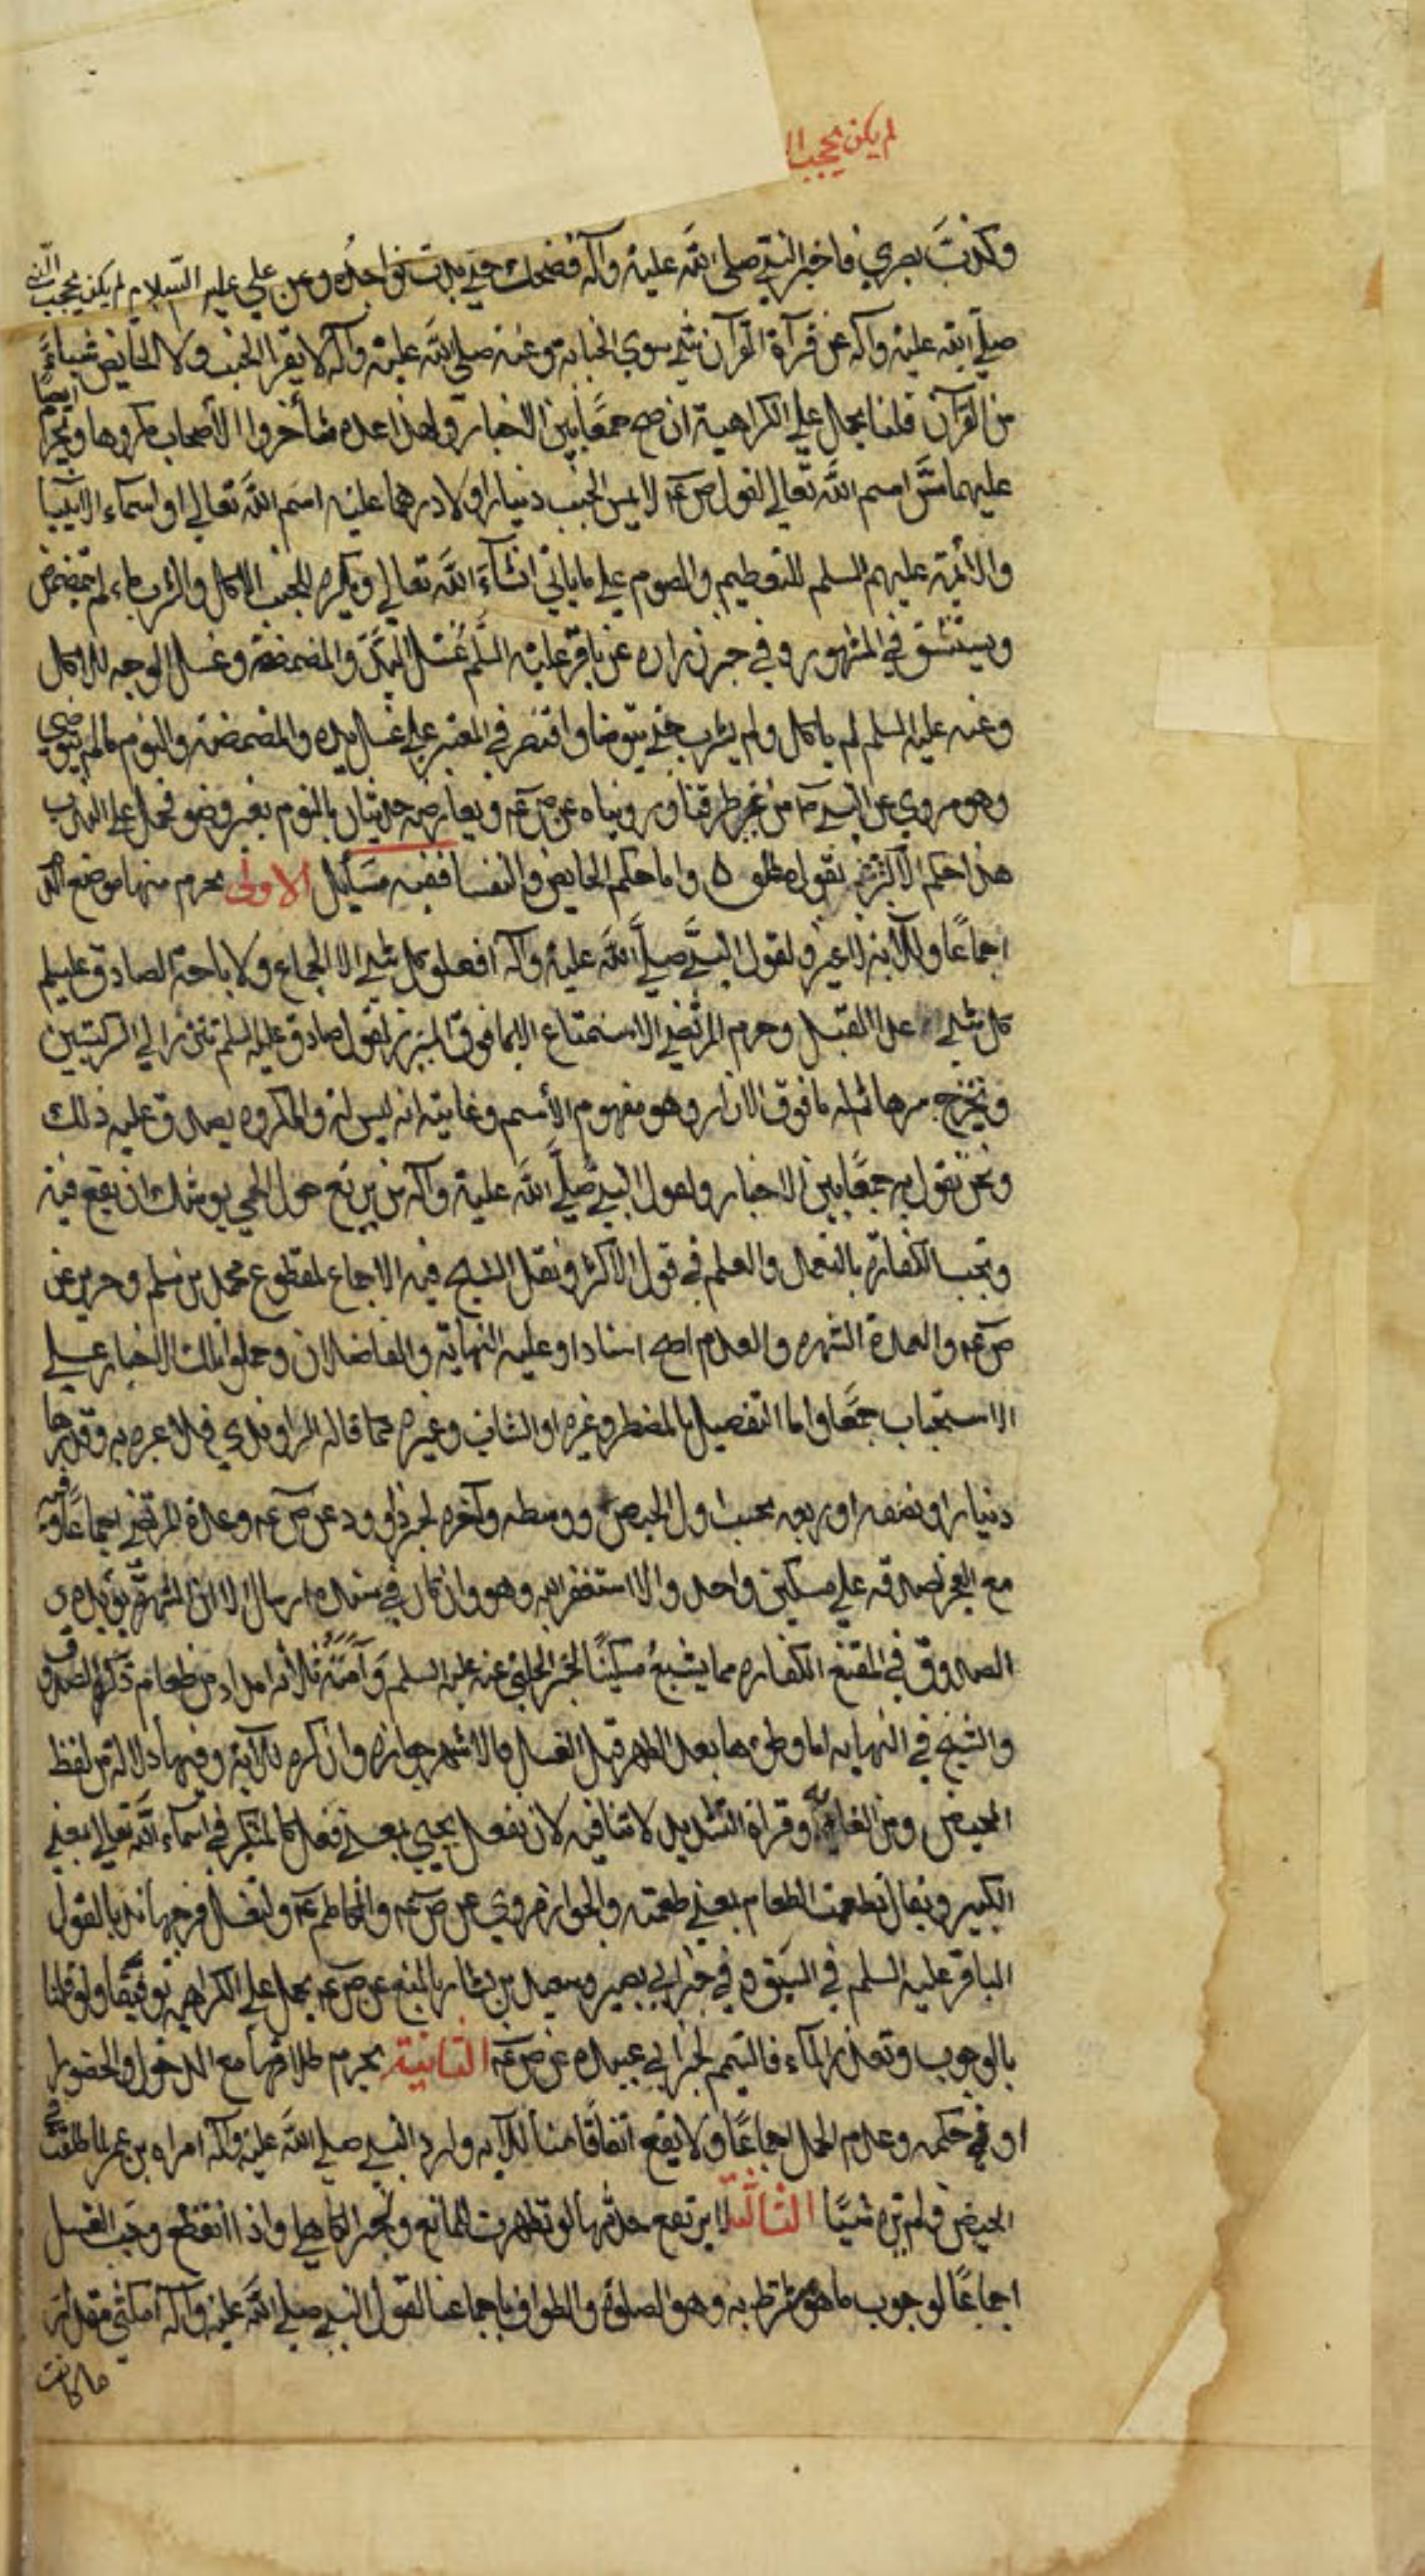 لم يكن يحجب ا
وكذبت بصري فاخبر النبي صلى الله عليه وآله فضحك حتى بدت نواجذه وعن علي عليه السلام لم يكن يحجب النبي
صلى الله عليه وآله عن قرآة القرآن شي سوى الجنابة وعنه صلى الله عليه وآله لا يقرا الجنب ولا الحايض شيئا
من القرآن قلنا يحمل على الكراهية ان صح جمعا بين الاخبار ولهذا عده متأخروا الأصحاب مكروها ويحرم ايضا
عليهما مس اسم الله تعالى لقول ص عم لا يمس الجنب دينارا ولا درهما عليه اسم الله تعالى او اسماء الانبيا
والائمة عليهم السلم للتعظيم والصوم على ما ياتي انشآء الله تعالى ويكره للجنب الاكل والشرب ما لم يتمضمض
ويستنشق في المشهور وفي خبر زراره عن باقر عليه السلم غسل اليد والمضمضة وغسل الوجه للاكل
وعنه عليه السلم لم ياكل ولم يشرب حتى يتوضا واقتصر في المعتبر على غسل يده والمضمضة والنوم ما لم يتوضي
وهو مروي عن النبي ص من غير طرقنا ورويناه عن ص عم ويعارضه حديثان بالنوم بغير وضو فحمل على الندب
هذا حكم الاكثر وا ما حكم الحايض والنفسا ففيه مسايل الاولى يحرم منها موضع الدم
اجماعا وللآية ولقول النبي صلى الله عليه وآله افعلو كل شي الا الجماع ولاباحة الصادق عليلم
كل شي عدا القبل وحرم المرتضى الاستمتاع الا بما فوق الميزر لقول صادق عليه السلم تتزر الى الركبتين
وتخرج سرتها ثم له ما فوق الازار وهو مفهوم الأسم وغايته انه ليس له والمكروه يصدق عليه ذلك
ونحن نقول به جمعا بين الاخبار ولقول النبي صلى الله عليه وآله من يرتع حول الحمى يوشك ان يقع فيه
وتجب الكفارة بالتعمد والعلم في قول الاكثر ونقل الشيخ فيه الاجماع لمقطوع محمد بن مسلم وخبرين عن
ص عم والعمدة الشهره والعدم اصح اسنادا وعليه النهاية والفاضلان وحملوا تلك الاخبار على
الاستحباب جمعا واما التفصيل بالمضطر وغيره او الشاب وغيره مما قاله الراوندي فلا عبره به وقدرها
دينار او نصفه او ربعه بحسب اول الحيض ووسطه وآخره لخبر داود عن ص عم وعده المرتضى اجماعا وفيه
مع العجز تصدقه على مسكين واحد والا استغفر الله وهو وان كان في سنده ارسال الا ان الشهرة تؤيده
الصدوق في المقنع الكفاره مما يشبع مسكينا لخبر الحلبي عنه عليه السلم وامته ثلاثة امداد من طعام ذكره الصدوق
والشيخ في النهايه اما وطؤها بعد الطهر قبل الغسل فالاشهر جوازه وان كره للآية وفيها دلالة من لفظ
المحيض ومن الغاية وقراة التشديد لا تنافيه لان تفعل يجيي بمعنى فعل كالمتكبر في اسماء الله تعالى بمعنى
الكبير ويقال تطعمت الطعام بمعنى طعمته والجواز مروي عن ص عم والكاظم عم ولتغسل فرجها ندبا لقول
الباقر عليه السلم في الشبق وفي خبر ابي بصير وسعيد بن يسار بالمنع عن ص عم يحمل على الكراهية توفيقا ولو قلنا
بالوجوب وتعذر المآء فالتيمم لخبر ابي عبيده عن ص عم الثانية يحرم طلاقها مع الدخول والحضور
او في حكمه وعدم الحمل اجماعا ولا يقع اتفاقا منا للآيه ولرد النبي صلى الله عليه وآله امراه بن عمر لما طلقت في
الحيض ولم يره شيئا الثالثة لا يرتفع حدثها لو تطهرت للمانع ولخبر الكاهلي واذا انقطع وجب الغسل
اجماعا لوجوب ما هو شرط به وهو الصلوة والطواف باجماعنا لقول النبي صلى الله عليه وآله امكثي مقدار
ما كانت